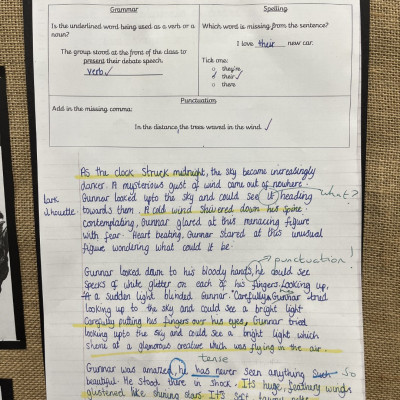 Grammar
Is the underlined word being used as a verb or a
noun?
The group stood at the front of the class to
present their debate speech.
verb ✓
Spelling
Which word is missing from the sentence?
I love their new car.
Tick one:
they're
their ✓
there
Punctuation
Add in the missing comma:
In the distance, the trees waved in the wind. ✓
As the clock struck midnight, the sky became increasingly
darker. A mysterious gust of wind came out of nowhere.
Gunnar looked upto the sky and could see it heading
what?
towards them. A cold wind shivered down his spine
contemplating, Gunnar glared at this menacing figure
with fear. Heart beating, Gunnar stared at this unusual
figure wondering what could it be.
punctuation!
Gunnar looked down to his bloody hands, he could see
specks of white glitter on each of his fingers. Looking up,
a sudden light blinded Gunnar. Carefully Gunnar tried
looking up to the sky and could see a bright light
Carefully putting his fingers over his eyes, Gunnar tried
looking upto the sky and could see a bright light which
shone at a glomorous creative which was flying in the air.
tense
Gunnar was amazed, he has never seen anything such so
beautiful. He stood there in shock. It's huge, feathery wings
glistened like shining stars. It's soft